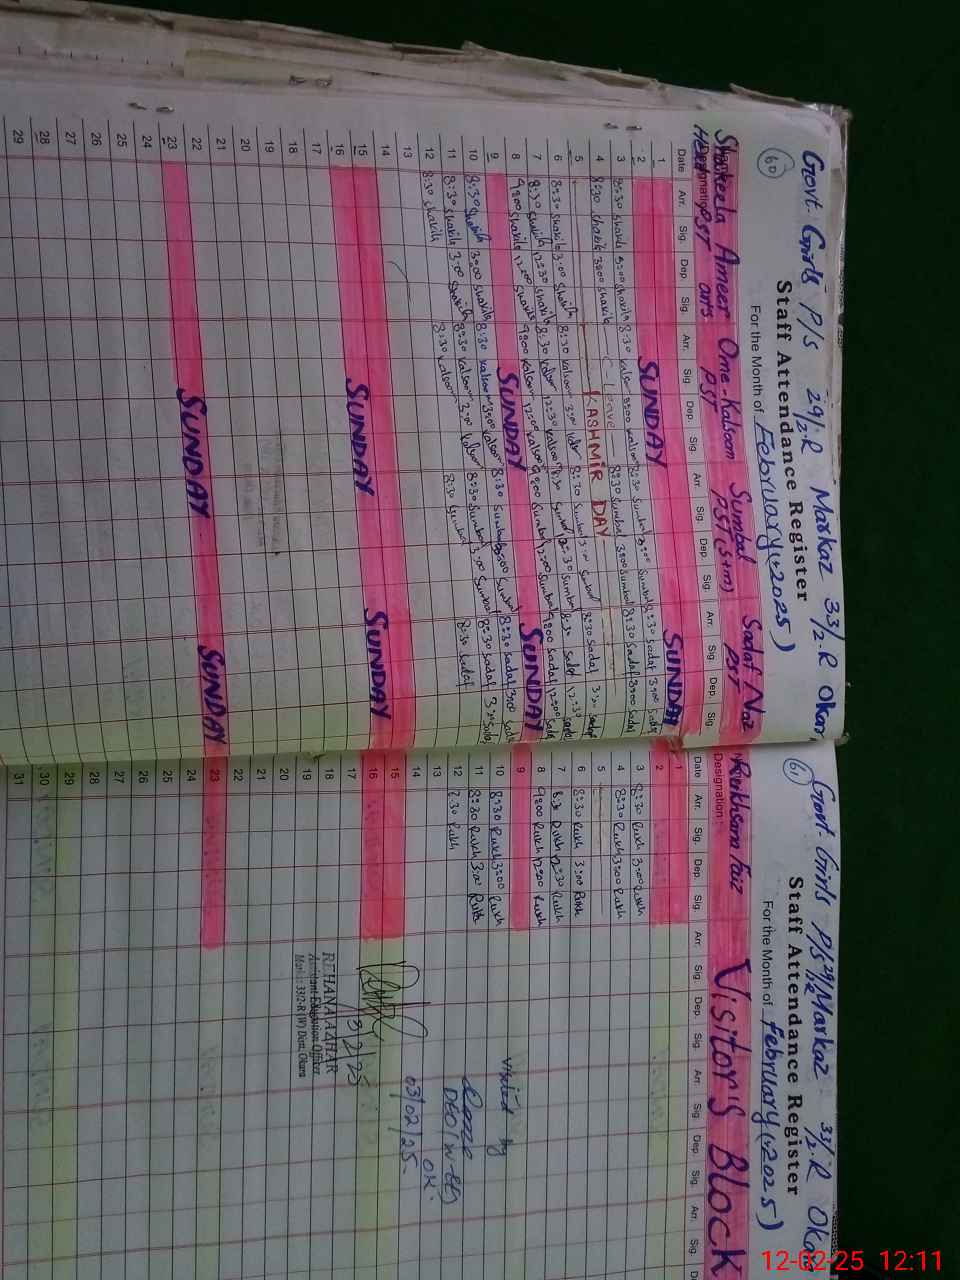 60
Govt. Girls P/S 29/2.R Markaz 33/2.R Okara
Staff Attendance Register
For the Month of February (2025)
Shakeela Ameer Ome-Kalsoom Sumbal Sadaf Naz
Designation PST arts PST PST (S+m) PST
Date Arr. Sig. Dep. Sig. Arr. Sig Dep. Sig Arr. Sig. Dep. Sig. Arr. Sig. Dep. Sig.
1
2 SUNDAY SUNDAY
3 8:30 Shakila 3:00 Shakila 8:30 Kalsoom 3:00 Kalsoom 8:30 Sumbal 3:00 Sumbal 8:30 Sadaf 3:00 Sadaf
4 8:30 Shakila 3:00 Shakila Leave 8:30 Sumbal 3:00 Sumbal 8:30 Sadaf 3:00 Sadaf
5 KASHMIR DAY
6 8:30 Shakila 3:00 Shakila 8:30 Kalsoom 3:00 8:30 Sumbal 3:00 Sumbal 8:30 Sadaf 3:00 Sadaf
7 8:30 Shakila 12:30 Shakila 8:30 Kalsoom 12:30 Kalsoom 8:30 Sumbal 12:30 Sumbal 8:30 Sadaf 12:30 Sadaf
8 9:00 Shakila 12:00 Shakila 9:00 Kalsoom 12:00 Kalsoom 9:00 Sumbal 12:00 Sumbal 9:00 Sadaf 12:00 Sadaf
9 SUNDAY SUNDAY
10 8:30 Shakila 3:00 Shakila 8:30 Kalsoom 3:00 Kalsoom 8:30 Sumbal 3:00 Sumbal 8:30 Sadaf 3:00 Sadaf
11 8:30 Shakila 3:00 Shakila 8:30 Kalsoom 3:00 8:30 Sumbal 3:00 Sumbal 8:30 Sadaf 3:00 Sadaf
12 8:30 Shakila 8:30 Kalsoom 8:30 Sumbal 8:30 Sadaf
13
14
15
16 SUNDAY SUNDAY
17
18
19
20
21
22
23 SUNDAY SUNDAY
24
25
26
27
28
29
61
Govt. Girls P/S 29/2R Markaz 33/2.R Okara
Staff Attendance Register
For the Month of February (2025)
Rukhsana Faiz VISITOR'S BLOCK
Designation :
Date Arr. Sig. Dep. Sig. Arr. Sig. Dep. Sig. Arr. Sig. Dep. Sig. Arr. Sig.
1
2
3 8:30 Rukh 3:00 Rukh
4 8:30 Rukh 3:00 Rukh
5
6 8:30 Rukh 3:00 Rukh
7 8:30 Rukh 12:30 Rukh
8 9:00 Rukh 12:00 Rukh
9
10 8:30 Rukh 3:00 Rukh
11 8:30 Rukh 3:00 Rukh
12 8:30 Rukh
13
14
15
16
17
18
19
20
21
22
23
24
25
26
27
28
29
30
31
visited by
DEO(W-EE)
OK.
03/02/25.
8/2/25
REHANA AZHAR
Assistant Education Officer
Markaz 33/2-R (W) Distt. Okara
12-02-25 12:11